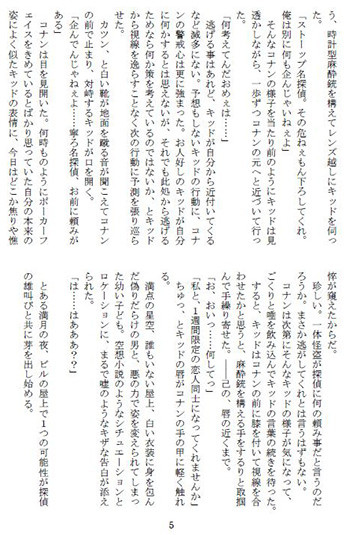 う、時計型麻酔銃を構えてレンズ越しにキッドを伺っ
た。
「ストーップ名探偵。その危ねぇもん下ろしてくれ。
俺は別に何も企んじゃいねぇよ」
そんなコナンの様子を当たり前のようにキッドは見
透かしながら、一歩ずつコナンの元へと近づいて行っ
た。
「何考えてんだおめぇは……」
逃げる事はあれど、キッドが自分から近付いてくる
など滅多にない。予想もしないキッドの行動に、コナ
ンの警戒心は更に強まった。お人好しのキッドが自分
に何かするとは思えないが、それでも此処から逃げる
ためなら何か策を考えているのではないか、とキッド
から視線を逸らすことなく次の行動に予測を張り巡ら
せた。
カツン、と白い靴が地面を蹴る音が聞こえてコナン
の前で止まり、対峙するキッドが口を開く。
「企んでんじゃねぇよ……寧ろ名探偵、お前に頼みが
ある」
コナンは目を見開いた。何時ものようにポーカーフ
ェイスをきめているとばかり思っていた自分の本来の
姿によく似たキッドの表情に、今日はどこか焦りや憔
悴が窺えたからだ。
珍しい。一体怪盗が探偵に何の頼み事だと言うのだ
ろうか。まさか逃がしてくれとは言うはずもない。
コナンは次第にそんなキッドの様子が気になって、
ごくりと唾を飲み込んでキッドの言葉の続きを待った。
すると、キッドはコナンの前に膝を付いて視線を合
わせたかと思うと、麻酔銃を構える手をするりと取掴
んで手繰り寄せた。――己の、唇の近くまで。
「お、おいっ……何してっ」
「私と、1週間限定の恋人同士になってくれませんか」
ちゅっ、とキッドの唇がコナンの手の甲に軽く触れ
た。
満点の星空、誰もいない屋上、白い衣装に身を包ん
だ偽りだらけの男と、悪の力で姿を変えられてしまっ
た幼い子ども。空想小説のようなシチュエーションと
ロケーションに、まるで嘘のようなキザな告白が添え
られた。
「は……はあああ？？」
とある満月の夜、ビルの屋上で1つの可能性が探偵
の雄叫びと共に芽を出し始める。
5